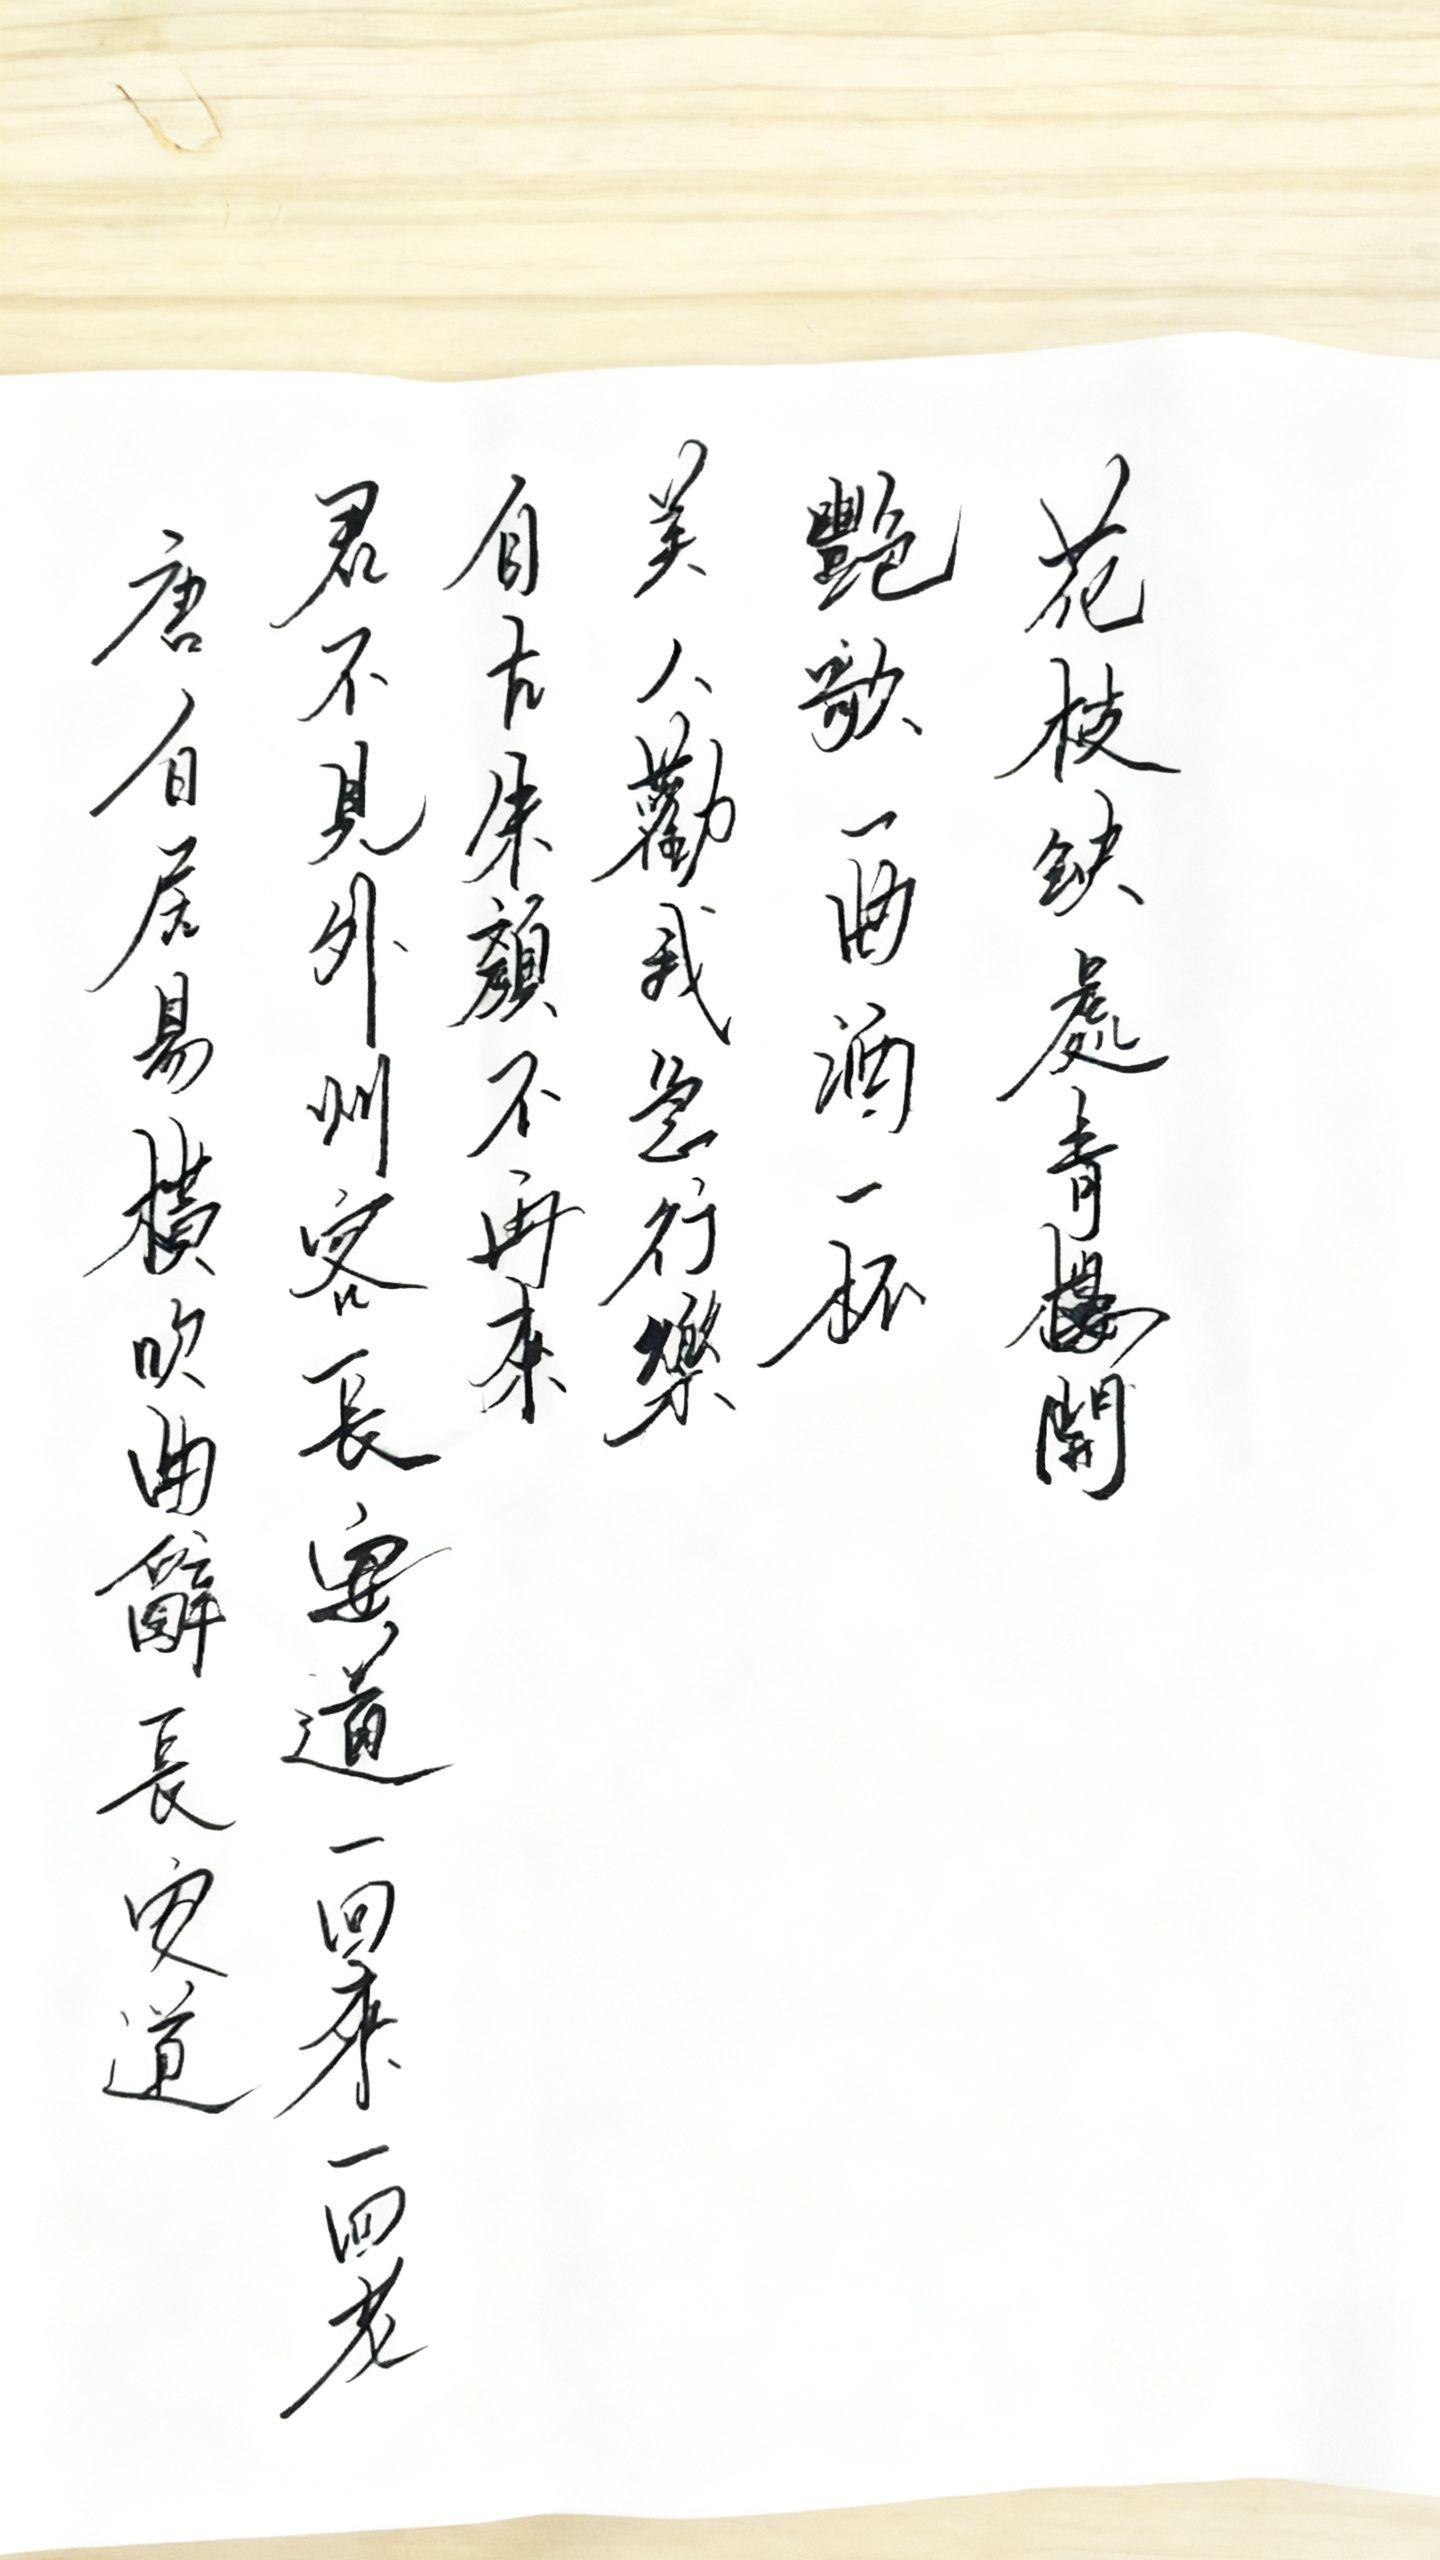 花枝缺處青樓開
艷歌一曲酒一杯
美人勸我急行樂
自古朱顏不再來
君不見外州客長安道一回來一回老
唐白居易橫吹曲辭長安道